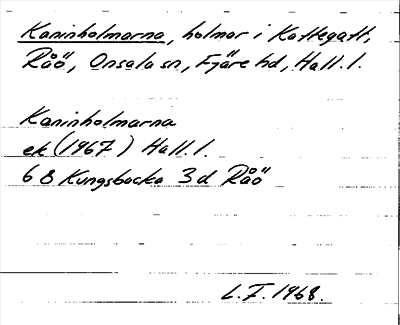 Kaninholmarna, holmar i Kattegatt,
Råö, Onsala sn, Fjäre hd, Hall. l.
Kaninholmarna
ek (1967) Hall. l.
6 B Kungsbacka 3 d Råö
L.F. 1968.